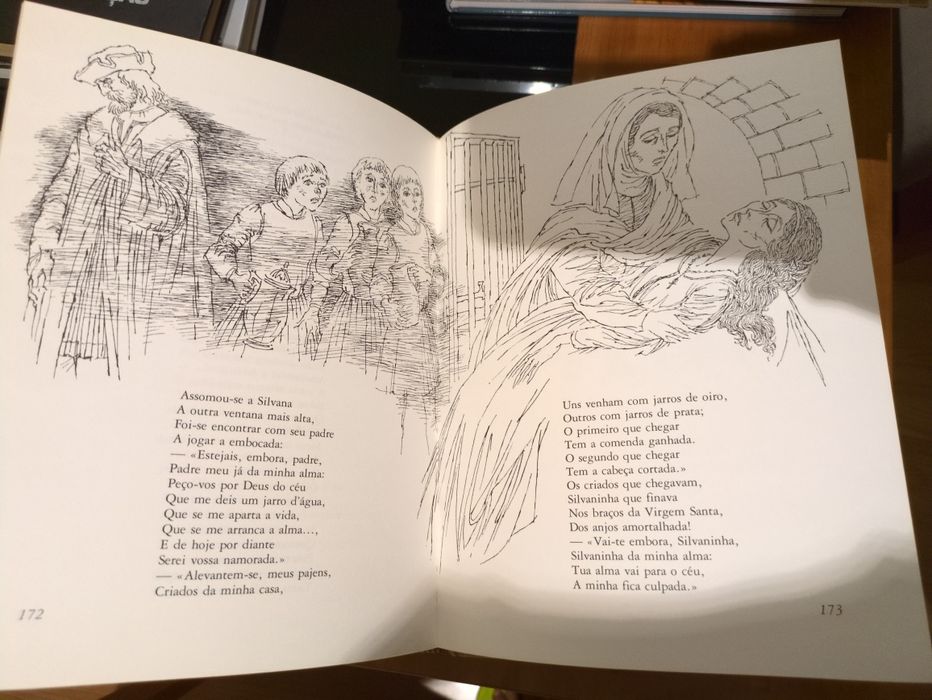 Assomou-se a Silvana
A outra ventana mais alta,
Foi-se encontrar com seu padre
A jogar a embocada:
— «Estejais, embora, padre,
Padre meu já da minha alma:
Peço-vos por Deus do céu
Que me deis um jarro d'água,
Que se me aparta a vida,
Que se me arranca a alma...,
E de hoje por diante
Serei vossa namorada.»
— «Alevantem-se, meus pajens,
Criados da minha casa,
172
Uns venham com jarros de oiro,
Outros com jarros de prata;
O primeiro que chegar
Tem a comenda ganhada.
O segundo que chegar
Tem a cabeça cortada.»
Os criados que chegavam,
Silvaninha que finava
Nos braços da Virgem Santa,
Dos anjos amortalhada!
— «Vai-te embora, Silvaninha,
Silvaninha da minha alma:
Tua alma vai para o céu,
A minha fica culpada.»
173